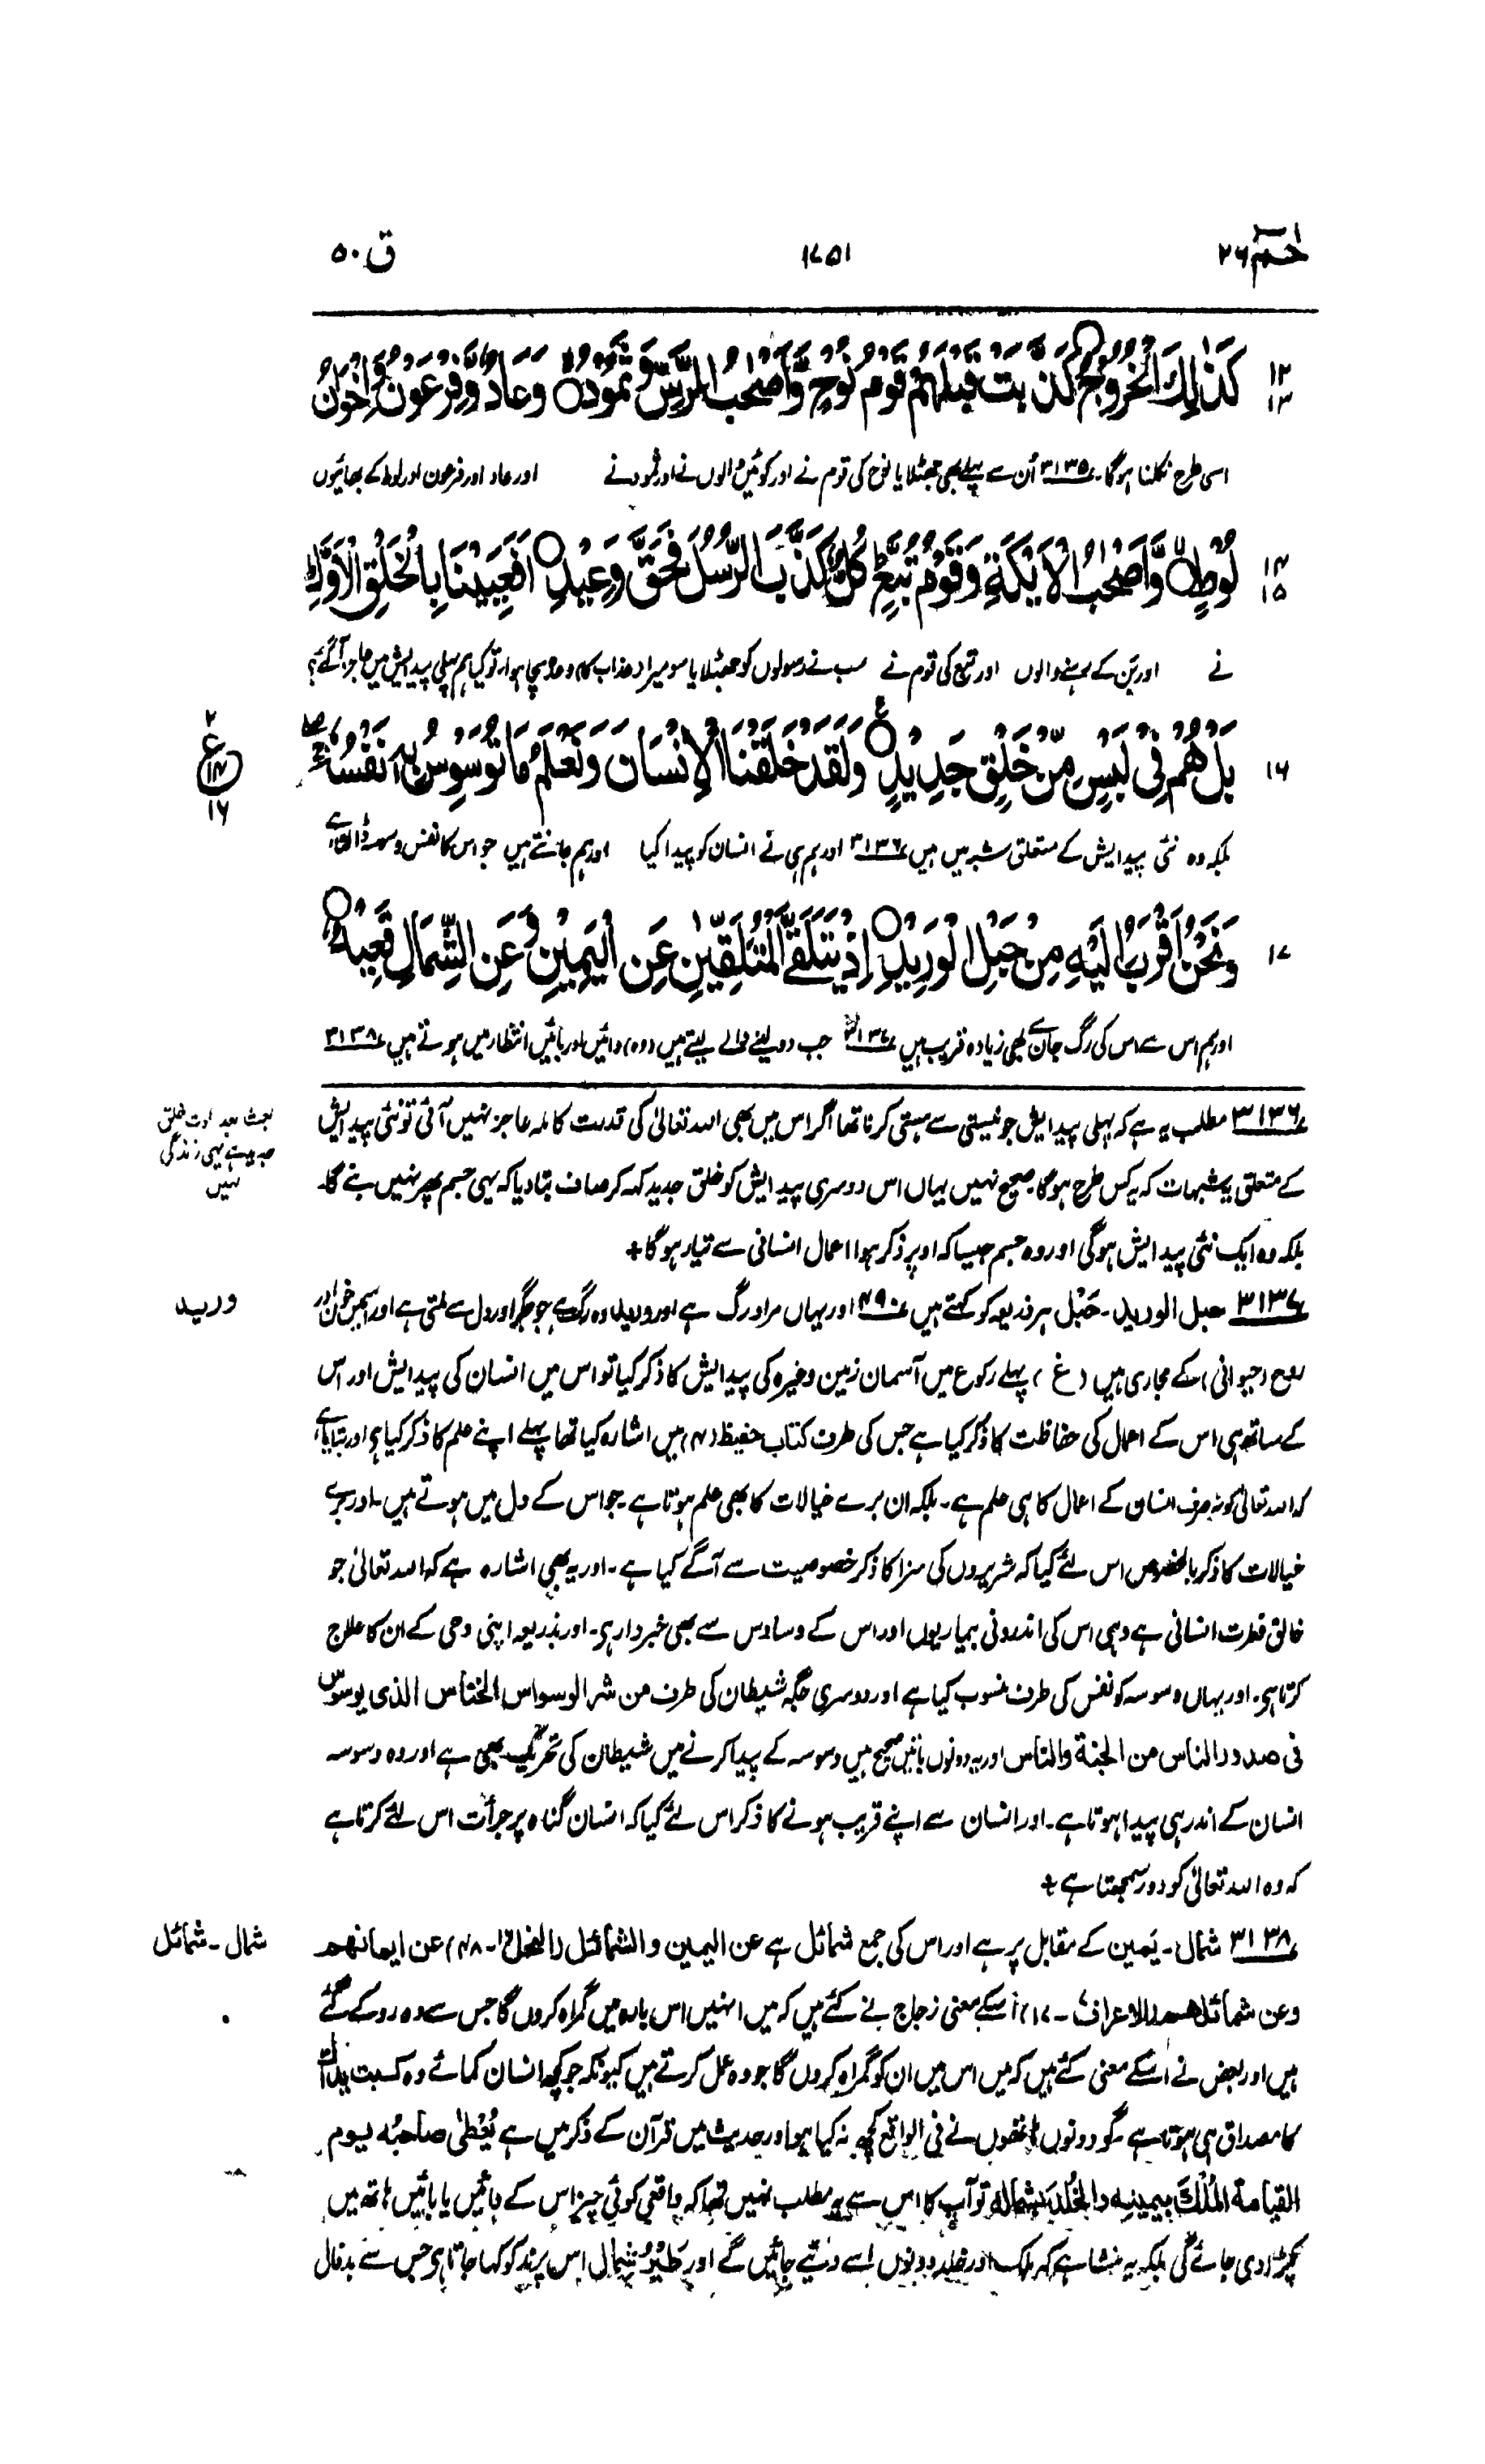 حٰمٓ ٢٦
١٧٥١
ق ٥٠
١٢ ١٣ كَذٰلِكَ الْخُرُوْجُ ○ كَذَّبَتْ قَبْلَهُمْ قَوْمُ نُوْحٍ وَّاَصْحٰبُ الرَّسِّ وَثَمُوْدُ ○ وَعَادٌ وَّفِرْعَوْنُ وَاِخْوَانُ
اسی طرح نکلنا ہوگا۔ ٣١٣٥ اُن سے پہلے بھی جھٹلایا نوح کی قوم نے اور کوئیں والوں نے اور ثمود نے اور عاد اور فرعون اور لوط کے بھائیوں
١٤ ١٥ لُوْطٍ ○ وَّاَصْحٰبُ الْاَيْكَةِ وَقَوْمُ تُبَّعٍ ؕ كُلٌّ كَذَّبَ الرُّسُلَ فَحَقَّ وَعِيْدِ ○ اَفَعَيِيْنَا بِالْخَلْقِ الْاَوَّلِ ؕ
نے اور بَن کے رہنے والوں اور تبع کی قوم نے سب نے رسولوں کو جھٹلایا سو میرا وعذاب کا وعدہ سچا ہوا، تو کیا ہم پہلی پیدایش میں عاجز آگئے؟
١٦ بَلْ هُمْ فِىْ لَبْسٍ مِّنْ خَلْقٍ جَدِيْدٍ ○ وَلَقَدْ خَلَقْنَا الْاِنْسَانَ وَنَعْلَمُ مَا تُوَسْوِسُ بِهٖ نَفْسُهٗ ۚ
٢ ع ١٤ ١٦
بلکہ وہ نئی پیدایش کے متعلق شبہ میں ہیں ٣١٣٦ اور ہم ہی نے انسان کو پیدا کیا اور ہم جانتے ہیں جو اس کا نفس وسوسہ ڈالتا ہے
١٧ وَنَحْنُ اَقْرَبُ اِلَيْهِ مِنْ حَبْلِ الْوَرِيْدِ ○ اِذْ يَتَلَقَّى الْمُتَلَقِّيٰنِ عَنِ الْيَمِيْنِ وَعَنِ الشِّمَالِ قَعِيْدٌ ○
اور ہم اس سے اس کی رگ جان سے بھی زیادہ قریب ہیں ٣١٣٧ جب دو لینے والے لیتے ہیں (وہ) دائیں اور بائیں انتظار میں ہوتے ہیں ٣١٣٨
٣١٣٦ مطلب یہ ہے کہ پہلی پیدایش جو نیستی سے ہستی کرنا تھا اگر اس میں بھی اللہ تعالیٰ کی قدرت کاملہ عاجز نہیں آئی تو نئی پیدایش
بعث بعد الموت خلق
جدید ہے یہی زندگی
نہیں
کے متعلق یہ شبہات کہ یہ کس طرح ہوگا صحیح نہیں یہاں اس دوسری پیدایش کو خلق جدید کہہ کر صاف بتادیا کہ یہی جسم پھر نہیں بنے گا۔
بلکہ وہ ایک نئی پیدایش ہوگی اور وہ جسم جیسا کہ اوپر ذکر ہوا اعمال انسانی سے تیار ہوگا +
٣١٣٧ حبل الورید۔ حَبْل ہر ذریعہ کو کہتے ہیں ٤٩٠ اور یہاں مراد رگ ہے اور ورید وہ رگ ہے جو جگر اور دل سے ملتی ہے اور اس میں خون اور
ورید
روح (حیوانی) کے مجاری ہیں (غ) پہلے رکوع میں آسمان زمین وغیرہ کی پیدایش کا ذکر کیا تو اس میں انسان کی پیدایش اور اس
کے ساتھ ہی اس کے اعمال کی حفاظت کا ذکر کیا ہے جس کی طرف کتاب حفیظ (٤) میں اشارہ کیا تھا پہلے اپنے علم کا ذکر کیا ہے اور بتایا ہے
کہ اللہ تعالیٰ کو نہ صرف انسان کے اعمال کا ہی علم ہے۔ بلکہ ان برے خیالات کا بھی علم ہوتا ہے۔ جو اس کے دل میں ہوتے ہیں۔ اور برے
خیالات کا ذکر بالخصوص اس لئے کیا کہ شریروں کی سزا کا ذکر خصوصیت سے آگے کیا ہے۔ اور یہ بھی اشارہ ہے کہ اللہ تعالیٰ جو
خالق فطرت انسانی ہے وہی اس کی اندرونی بیماریوں اور اس کے وساوس سے بھی خبردار ہی۔ اور بذریعہ اپنی وحی کے ان کا علاج
کرتا ہی۔ اور یہاں وسوسہ کو نفس کی طرف منسوب کیا ہے اور دوسری جگہ شیطان کی طرف من شر الوسواس الخناس الذی یوسوس
فی صدور الناس من الجنۃ والناس اور یہ دونوں باتیں صحیح ہیں وسوسہ کے پیدا کرنے میں شیطان کی تحریک بھی ہے اور وہ وسوسہ
انسان کے اندر ہی پیدا ہوتا ہے۔ اور انسان سے اپنے قریب ہونے کا ذکر اس لئے کیا کہ انسان گناہ پر جرأت اس لئے کرتا ہے
کہ وہ اللہ تعالیٰ کو دور سمجھتا ہے +
٣١٣٨ شمال۔ یَمین کے مقابل پر ہے اور اس کی جمع شمائل ہے عن الیمین والشمائل (النحل ١٦۔ ٤٨) عن ایمانھم
شمال۔ شمائل
وعن شمائلھم (الاعراف۔ ١٧) اسکے معنی زجاج نے کئے ہیں کہ میں انہیں اس بارہ میں گمراہ کروں گا جس سے وہ روکے گئے
ہیں اور بعض نے اسکے معنی کئے ہیں کہ میں اس میں ان کو گمراہ کروں گا جو وہ عمل کرتے ہیں کیونکہ جو کچھ انسان کمائے وہ کسبت یداک
کا مصداق ہی ہوتا ہے۔ گو دونوں ہاتھوں نے فی الواقع کچھ نہ کیا ہو اور حدیث میں قرآن کے ذکر میں ہے یُعْطٰی صاحبُہ یوم
القیامۃ المُلْکَ بیمینہ والخُلدَ بشمالہ تو آپ کا اس سے یہ مطلب نہیں تھا کہ واقعی کوئی چیز اس کے دائیں یا بائیں ہاتھ میں
پکڑا دی جائے گی بلکہ یہ منشا ہے کہ ملک اور خلد دونوں اسے دئیے جائیں گے اور طَیْرُ شمال اس پرند کو کہا جاتا ہی جس سے بدفال